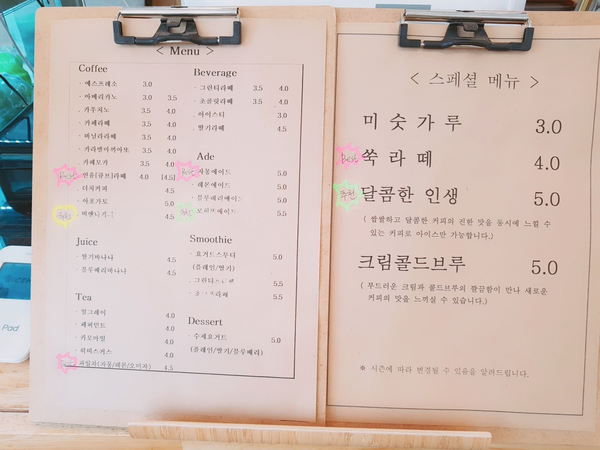 < Menu >
Coffee
· 에스프레소 3.0
· 아메리카노 3.0 3.5
· 카푸치노 3.5 4.0
· 카페라떼 3.5 4.0
· 바닐라라떼 3.5 4.0
· 카라멜마끼아또 3.5 4.0
· 카페모카 3.5 4.0
Best · 연유(큐브)라떼 4.0 [4.5]
· 더치커피 4.5
· 아포가토 5.0
· 비엔나 4.5
Juice
· 딸기바나나 4.5
· 블루베리바나나 4.5
Tea
· 얼그레이 4.0
· 페퍼민트 4.0
· 카모마일 4.0
· 히비스커스 4.0
· 과일차(자몽/레몬/오미자) 4.5
Beverage
· 그린티라떼 3.5 4.0
· 초콜릿라떼 3.5 4.0
· 아이스티 3.0
· 딸기라떼 4.5
Ade
Best · 자몽에이드 5.0
· 레몬에이드 5.0
· 블루베리에이드 5.0
· 모히또에이드 5.5
Smoothie
· 요거트스무디 5.0
(플레인/딸기)
· 그린티 5.5
5.5
Dessert
· 수제요거트 5.0
(플레인/딸기/블루베리)
< 스페셜 메뉴 >
미 숫 가 루 3.0
Best 쑥 라 떼 4.0
추천 달콤한 인생 5.0
( 쌉쌀하고 달콤한 커피의 진한 맛을 동시에 느낄 수
있는 커피로 아이스만 가능합니다.)
크림콜드브루 5.0
( 부드러운 크림과 콜드브루의 깔끔함이 만나 새로운
커피의 맛을 느끼실 수 있습니다.)
※ 시즌에 따라 변경될 수 있음을 알려드립니다.
Pad